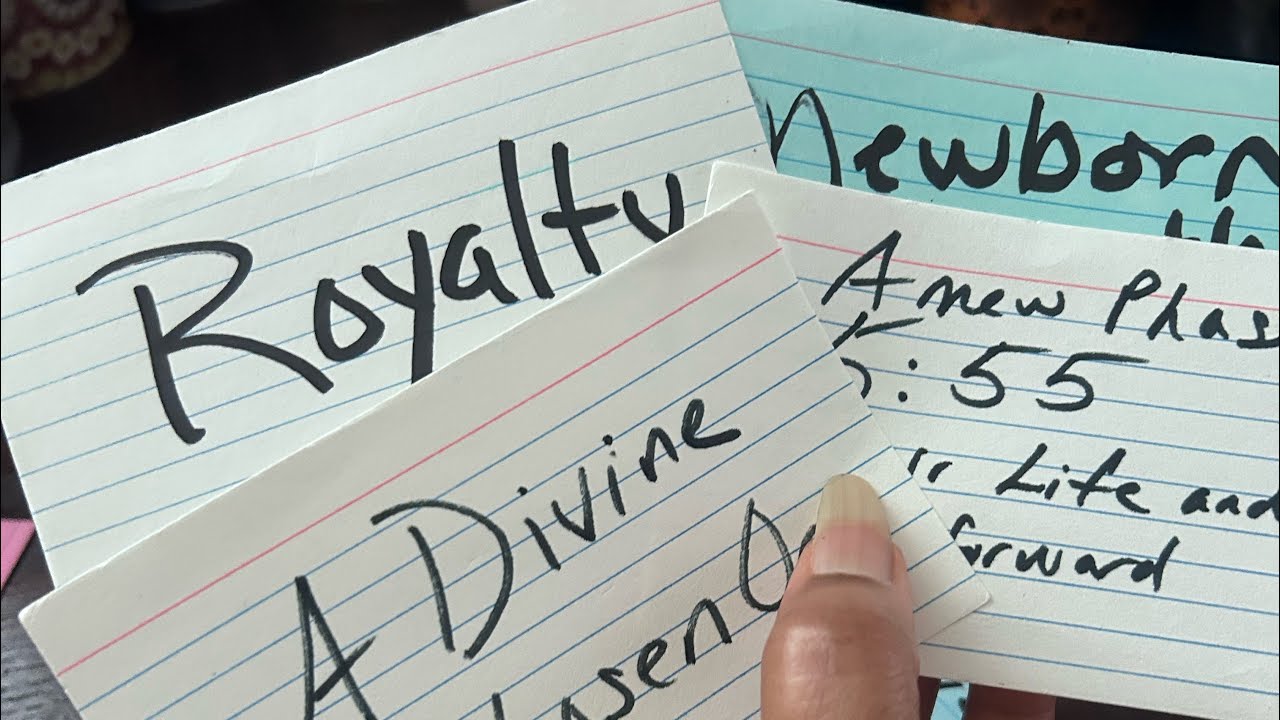 Royalty
Newborn
A new Phas
5:55
r Life and
forward
A Divine
hosen O